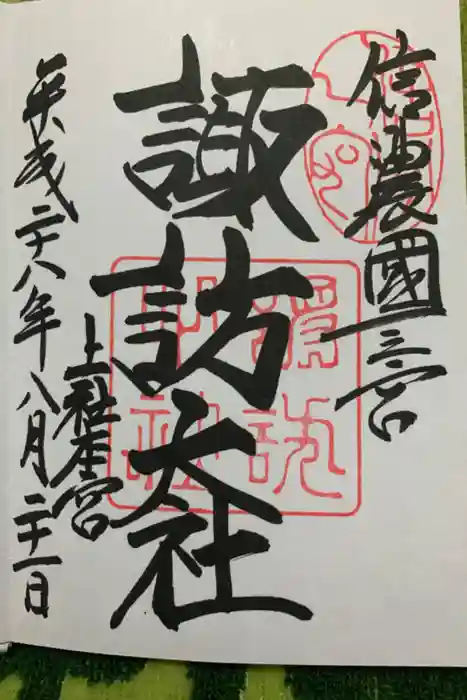 信濃國一之宮
諏訪大社
上社本宮
平成二十八年八月二十一日